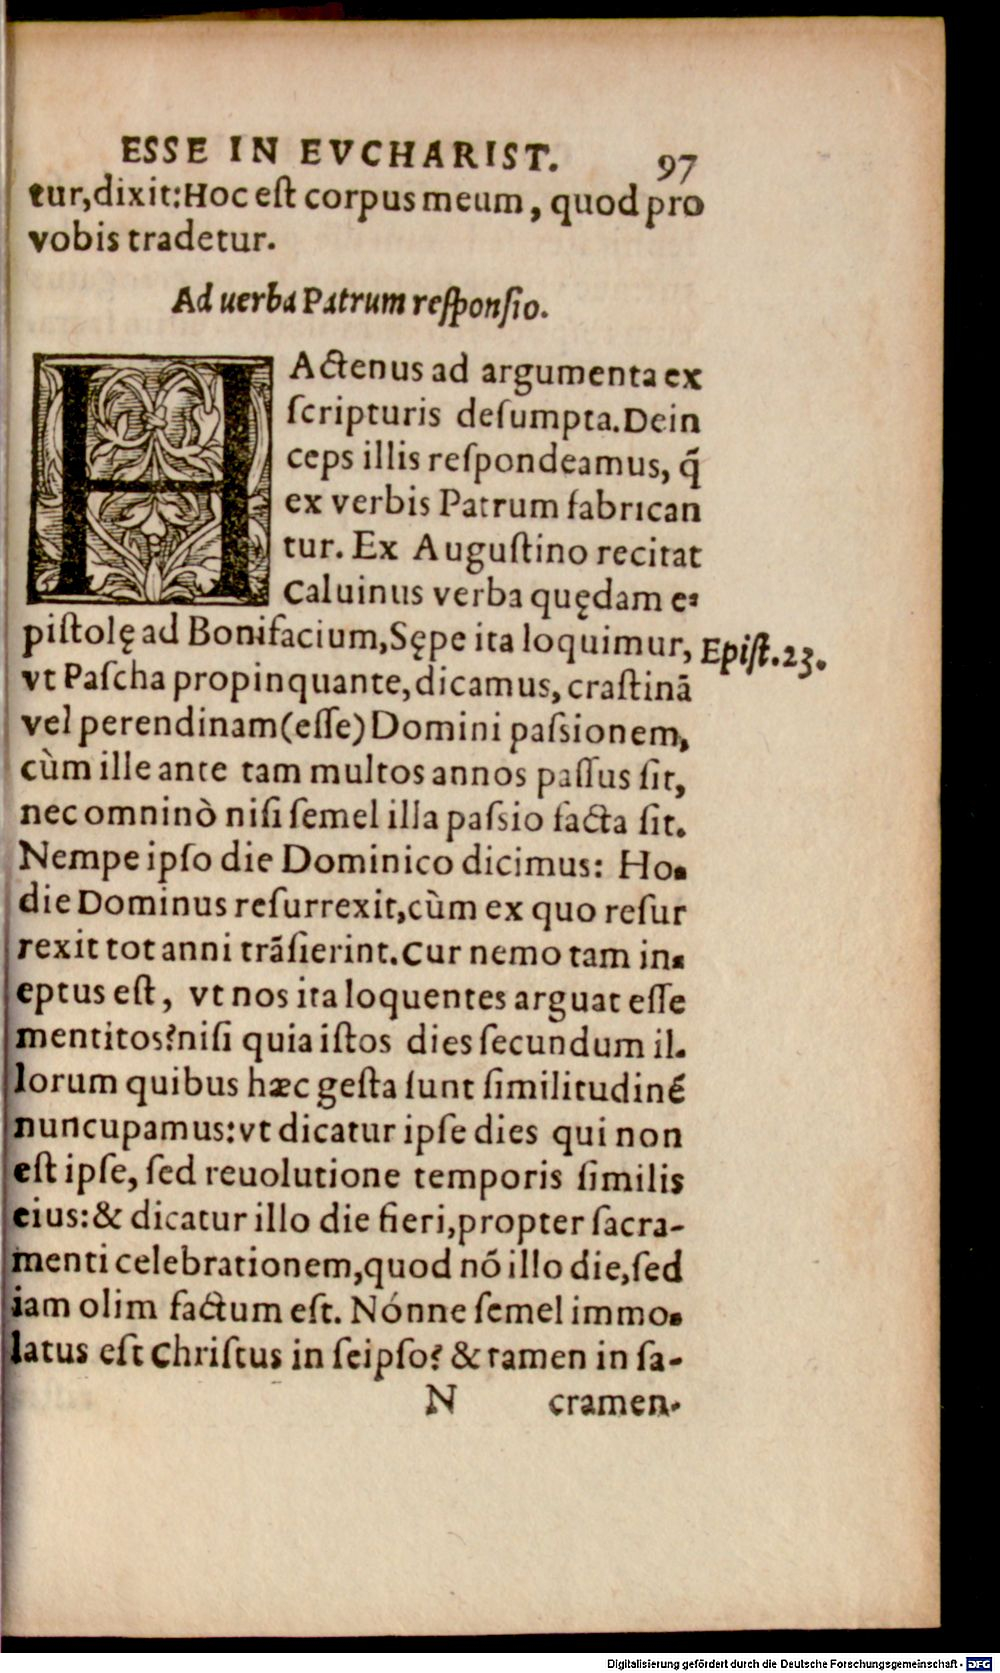 ESSE IN EVCHARIST. 97
tur,dixit:Hoc eſt corpus meum, quod pro
vobis tradetur.
Ad uerba Patrum reſponſio.
HActenus ad argumenta ex
ſcripturis deſumpta.Dein
ceps illis reſpondeamus, q̃
ex verbis Patrum fabrican
tur. Ex Auguſtino recitat
Caluinus verba quędam e-
piſtolę ad Bonifacium,Sępe ita loquimur, Epiſt.23.
vt Paſcha propinquante,dicamus, craſtinā
vel perendinam(eſſe)Domini paſsionem,
cùm ille ante tam multos annos paſſus ſit,
nec omninò niſi ſemel illa paſsio facta ſit.
Nempe ipſo die Dominico dicimus: Ho-
die Dominus reſurrexit,cùm ex quo reſur
rexit tot anni trāſierint.Cur nemo tam in-
eptus eſt, vt nos ita loquentes arguat eſſe
mentitos?niſi quia iſtos dies ſecundum il-
lorum quibus hæc geſta ſunt ſimilitudinē
nuncupamus:vt dicatur ipſe dies qui non
eſt ipſe, ſed reuolutione temporis ſimilis
eius:& dicatur illo die fieri,propter ſacra-
menti celebrationem,quod nō illo die,ſed
iam olim factum eſt. Nónne ſemel immo-
latus eſt Chriſtus in ſeipſo? & tamen in ſa-
N cramen-
Digitalisierung gefördert durch die Deutsche Forschungsgemeinschaft - DFG